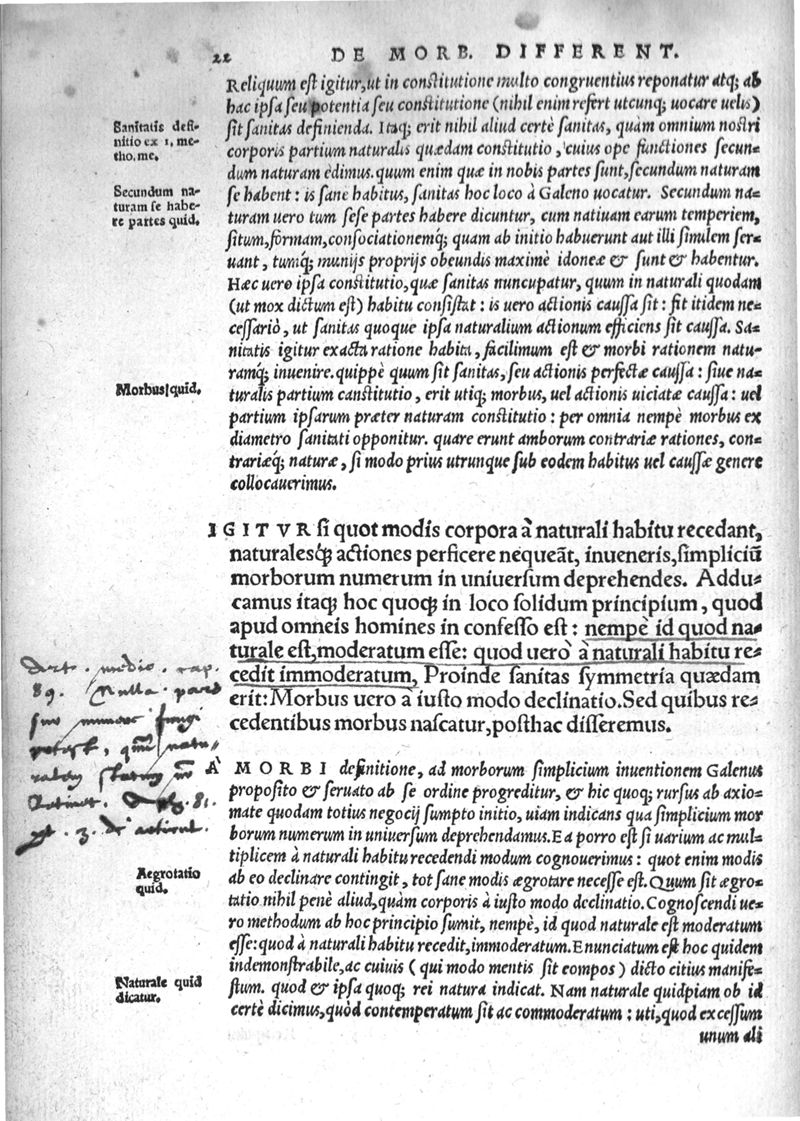 22 DE MORB. DIFFERENT.
Reliquum est igitur, ut in constitutione multo congruentius reponatur atq; ab
hac ipsa seu potentia seu constitutione (nihil enim refert utcunq; uocare uelis)
Sanitatis defi-
nitio ex 1, me-
tho, me.
sit sanitas definienda. Itaq; erit nihil aliud certè sanitas, quàm omnium nostri
corporis partium naturalis quædam constitutio, cuius ope functiones secun-
dum naturam èdimus. quum enim quæ in nobis partes sunt, secundum naturam
Secundum na-
turam se habe-
re partes quid.
se habent: is sane habitus, sanitas hoc loco à Galeno uocatur. Secundum na-
turam uero tum sese partes habere dicuntur, cum natiuam earum temperiem,
situm, formam, consociationemq; quam ab initio habuerunt aut illi similem ser-
uant, tumq; munijs proprijs obeundis maximè idoneæ & sunt & habentur.
Hæc uero ipsa constitutio, quæ sanitas nuncupatur, quum in naturali quodam
(ut mox dictum est) habitu consistat: is uero actionis caussa sit: fit itidem ne-
cessariò, ut sanitas quoque ipsa naturalium actionum efficiens sit caussa. Sa-
nitatis igitur exacta ratione habita, facilimum est & morbi rationem natu-
ramq; inuenire. quippè quum sit sanitas, seu actionis perfectæ caussa: siue na-
Morbus quid.
turalis partium canstitutio, erit utiq; morbus, uel actionis uiciatæ caussa: uel
partium ipsarum præter naturam constitutio: per omnia nempè morbus ex
diametro sanitati opponitur. quare erunt amborum contrariæ rationes, con-
trariæq; naturæ, si modo prius utrunque sub eodem habitus uel caussæ genere
collocauerimus.
IGITVR si quot modis corpora à naturali habitu recedant,
naturalesq; actiones perficere nequeāt, inueneris, simpliciū
morborum numerum in uniuersum deprehendes. Addu-
camus itaq; hoc quoq; in loco solidum principium, quod
apud omneis homines in confesso est: nempè id quod na-
turale est, moderatum esse: quod uerò à naturali habitu re-
cedit immoderatum, Proinde sanitas symmetria quædam
erit: Morbus uero à iusto modo declinatio. Sed quibus re-
cedentibus morbus nascatur, posthac disseremus.
89. Nulla pars
À MORBI definitione, ad morborum simplicium inuentionem Galenus
proposito & seruato ab se ordine progreditur, & hic quoq; rursus ab axio-
mate quodam totius negocij sumpto initio, uiam indicans qua simplicium mor
borum numerum in uniuersum deprehendamus. Ea porro est si uarium ac mul-
tiplicem à naturali habitu recedendi modum cognouerimus: quot enim modis
Aegrotatio
quid.
ab eo declinare contingit, tot sane modis ægrotare necesse est. Quum sit ægro-
tatio nihil penè aliud, quàm corporis à iusto modo declinatio. Cognoscendi ue-
ro methodum ab hoc principio sumit, nempè, id quod naturale est moderatum
esse: quod à naturali habitu recedit, immoderatum. Enunciatum est hoc quidem
indemonstrabile, ac cuiuis (qui modo mentis sit eompos) dicto citius manife-
Naturale quid
dicatur.
stum. quod & ipsa quoq; rei natura indicat. Nam naturale quidpiam ob id
certè dicimus, quòd contemperatum sit ac commoderatum: uti, quod excessum
unum ali